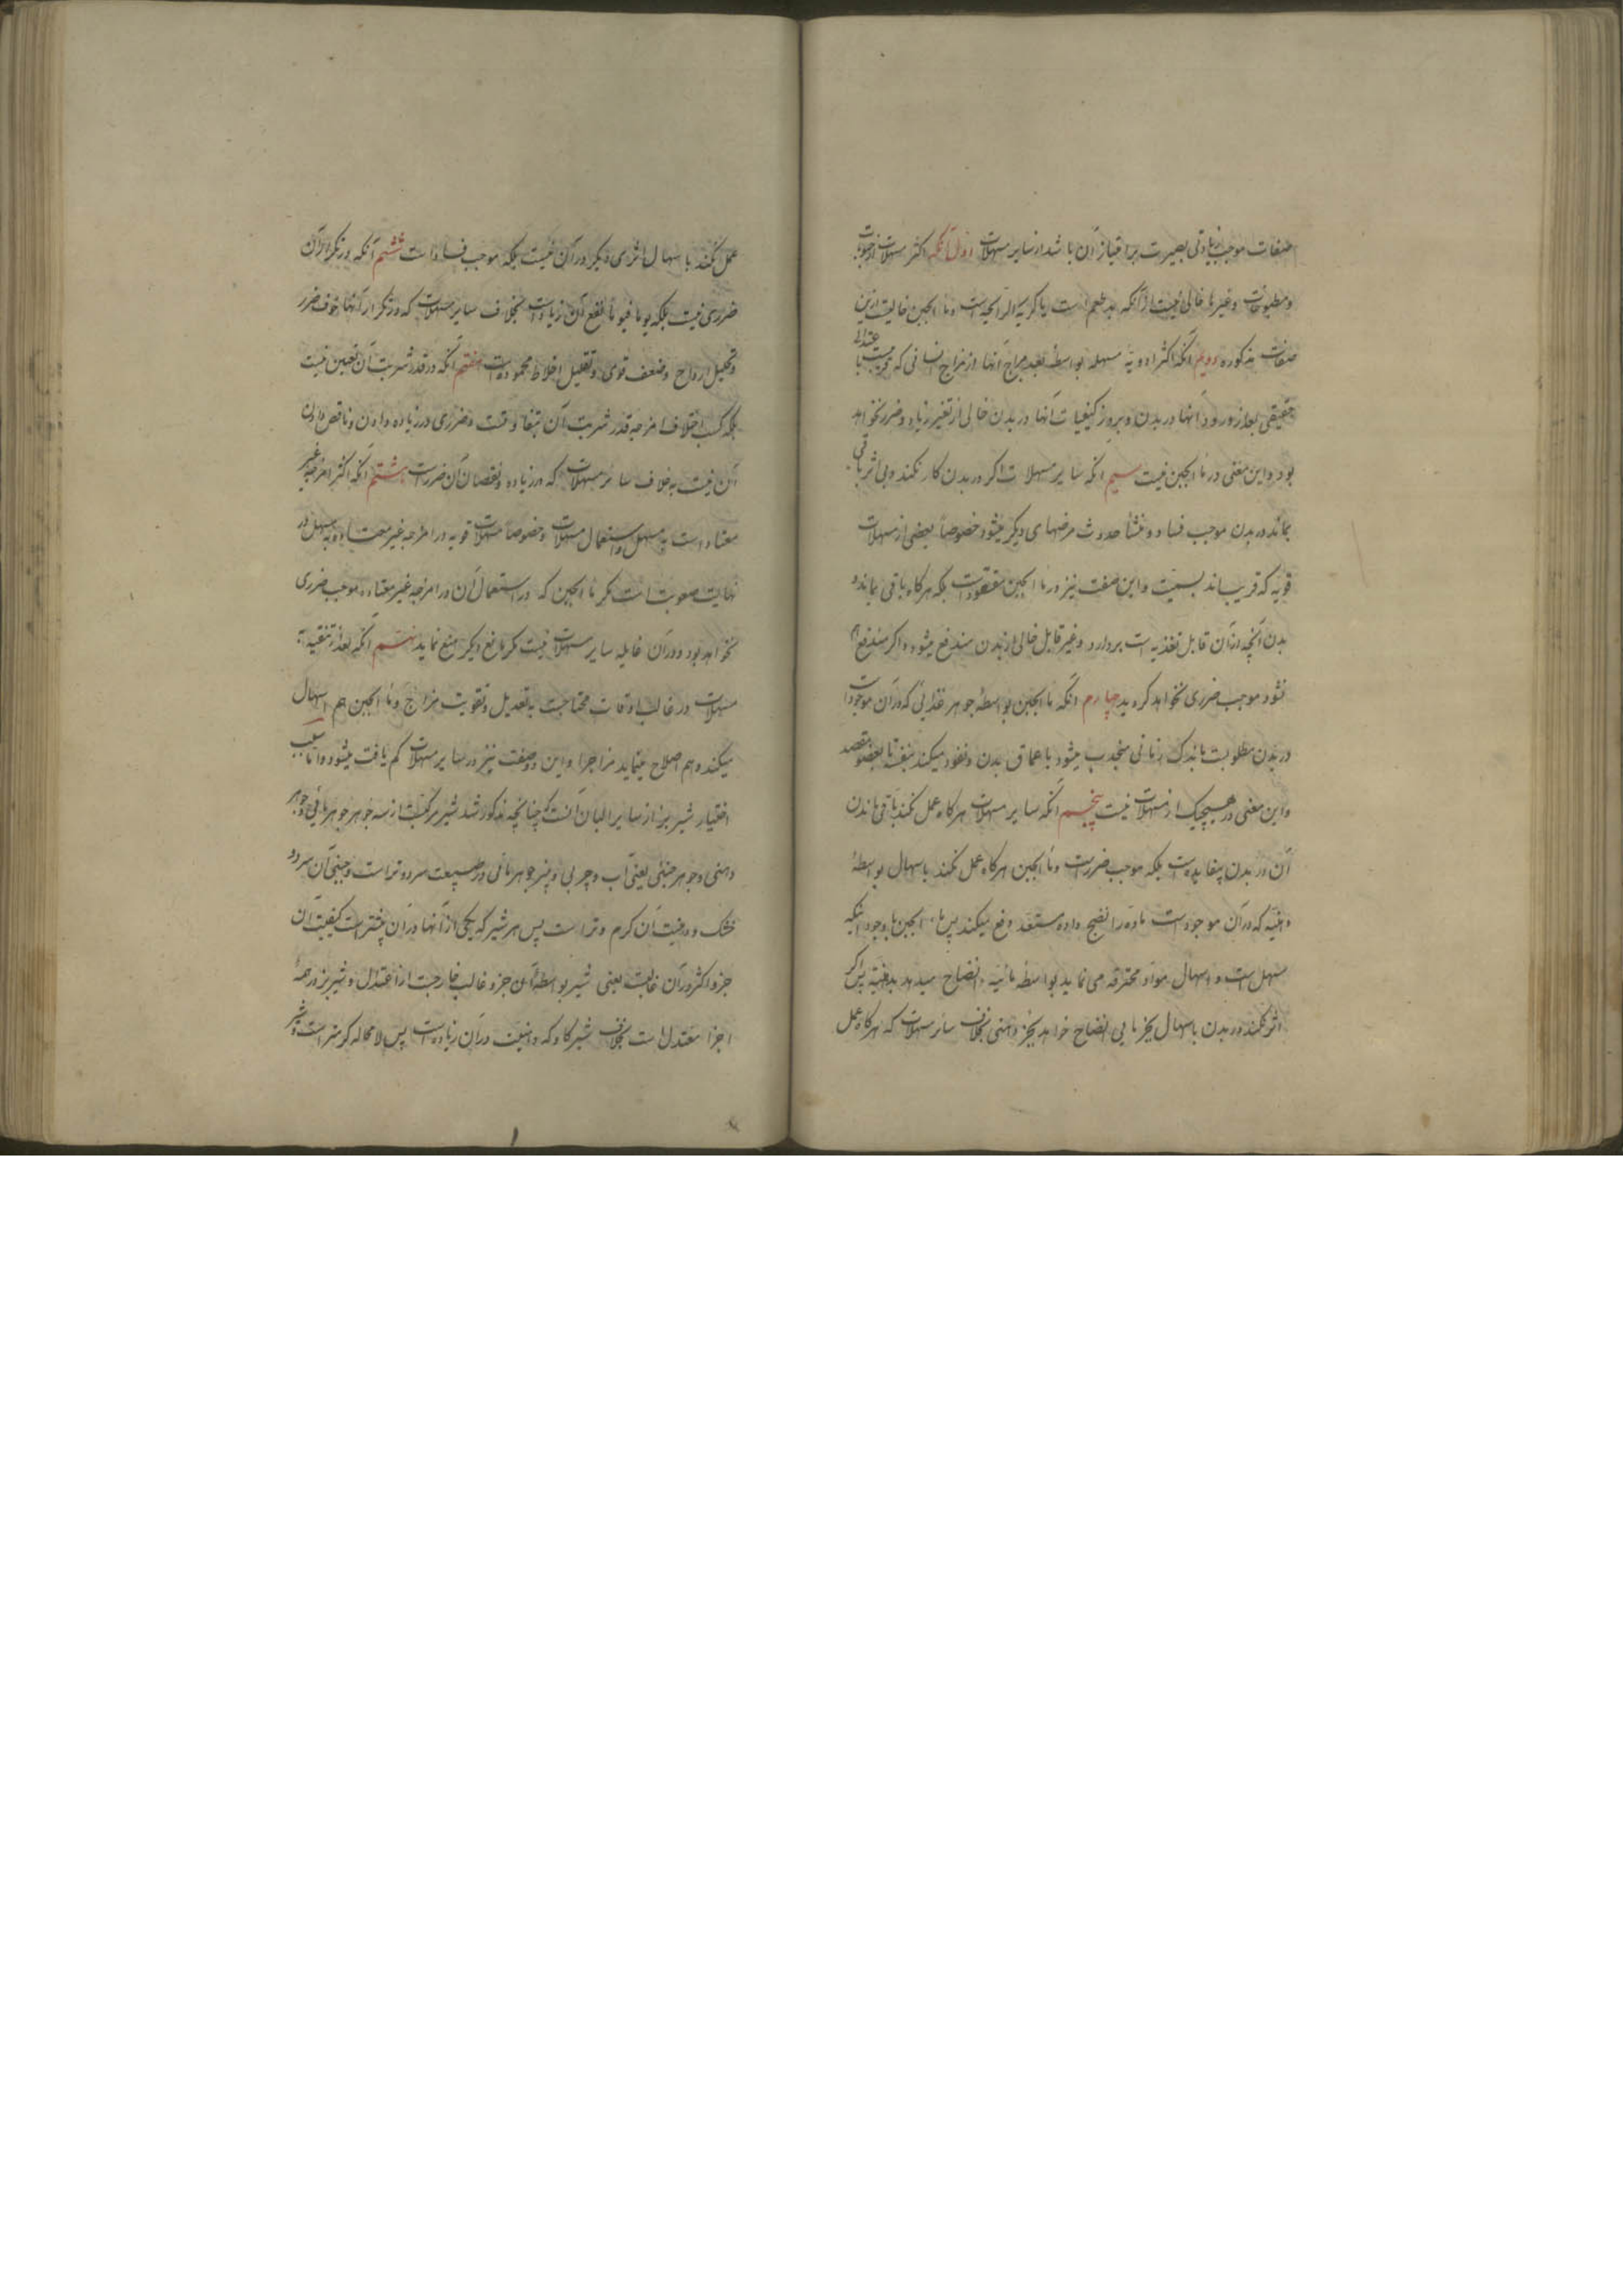 صفات موجب زیادتی بصیرت بر امتیاز آن باشد از سایر مسهلات اول آنکه اکثر مسهلات از حبوب
و مطبوخات و غیرها خالی نیست از آنکه بد طعم است یا کریه الرایحه است و ماء الجبن خالیست ازین
صفات مذکوره دویم آنکه اکثر ادویه مسهله بواسطه بعد مزاج آنها از مزاج انسانی که قریبست با اعتدال
حقیقی بعد از ورود آنها در بدن و بروز کیفیات آنها در بدن خالی از تغیر زیاد و ضرر نخواهد
بود و این معنی در ماء الجبن نیست سیم آنکه سایر مسهلات اگر در بدن کار نکند و بی اثر باقی
بماند در بدن موجب فساد و منشأ حدوث مرضهای دیگر میشود خصوصاً بعضی از مسهلات
قویه که قریب‌اند بسمیت و این صفت نیز در ماء الجبن مفقود است بلکه هرگاه باقی بماند در
بدن آنچه از آن قابل تغذیه است بر دارد و غیر قابل خالی از بدن مندفع میشود و اگر مندفع هم
نشود موجب ضرری نخواهد گردید چهارم آنکه ماء الجبن بواسطهٔ جوهر غذائی که در آن موجود است
در بدن مطلوبست باندک زمانی منجذب میشود باعماق بدن و نفوذ میکند بنفسه تا بعضو مقصد
و این معنی در هیچیک از مسهلات نیست پنجم آنکه سایر مسهلات هرگاه عمل نکند باقی ماندن
آن در بدن بیفایده است بلکه موجب ضرر است و ماء الجبن هرگاه عمل نکند باسهال بواسطهٔ
دهنیه که در آن موجود است ماده را نضج داده مستعد دفع میکند پس ماء الجبن با وجود اینکه
مسهل است و اسهال مواد محترقه می نماید بواسطه مائیه و انضاج میدهد بدهنیه پس اگر
اثر نکند در بدن باسهال بجزء مایی انضاج خواهد بجزء دهنی بخلاف سایر مسهلات که هرگاه عمل
عمل نکند باسهال اثری دیگر در آن نیست بلکه موجب فساد است ششم آنکه در تکرار آن
ضرری نیست بلکه یوما فیوماً نفع آن زیاد است بخلاف سایر مسهلات که در تکرار آنها خوف ضرر
و تحلیل ارواح و ضعف قوی و تقلیل اخلاط محموده است هفتم آنکه در قدر شربت آن تعیین نیست
بلکه بحسب اختلاف امزجه قدر شربت آن متفاوتست و ضرری در زیاده دادن و ناقص دادن
آن نیست بخلاف سائر مسهلات که در زیاده و نقصان آن ضرر است هشتم آنکه اکثر امزجه غیر
معتاد است به مسهل و استعمال مسهلات و خصوصاً مسهلات قویه در امزجه غیر معتاده به مسهل در
نهایت صعوبت است مگر ماء الجبن که در استعمال آن در امزجه غیر معتاده موجب ضرری
نخواهد بود و در آن غایله سایر مسهلات نیست مگر مانع دیگر منع نماید نهم آنکه بعد از تنقیه به
مسهلات در غالب اوقات محتاجست به تعدیل و تقویت مزاج و ماء الجبن هم اسهال
میکند و هم اصلاح مینماید مزاج را و این دو صفت نیز در سایر مسهلات کم یافت میشود و اما سبب
اختیار شیر بز از سایر البان آنست که چنانچه مذکور شد شیر مرکبست از سه جوهر جوهر مائی و جوهر
دهنی و جوهر جبنی یعنی آب و چربی و پنیر جوهر مائی در طبیعت سرد و تر است و جبنی آن سرد و
خشک و دهنیت آن گرم و تر است پس هر شیر که یکی از آنها در آن بیشتر است کیفیت آن
جزو اکثر در آن غالبست یعنی شیر بواسطهٔ آن جزو غالب خارجست از اعتدال و شیر بز در همهٔ
اجزا معتدل است بخلاف شیر گاو که دهنیت در آن زیاد است پس لامحاله گرمتر است و شیر